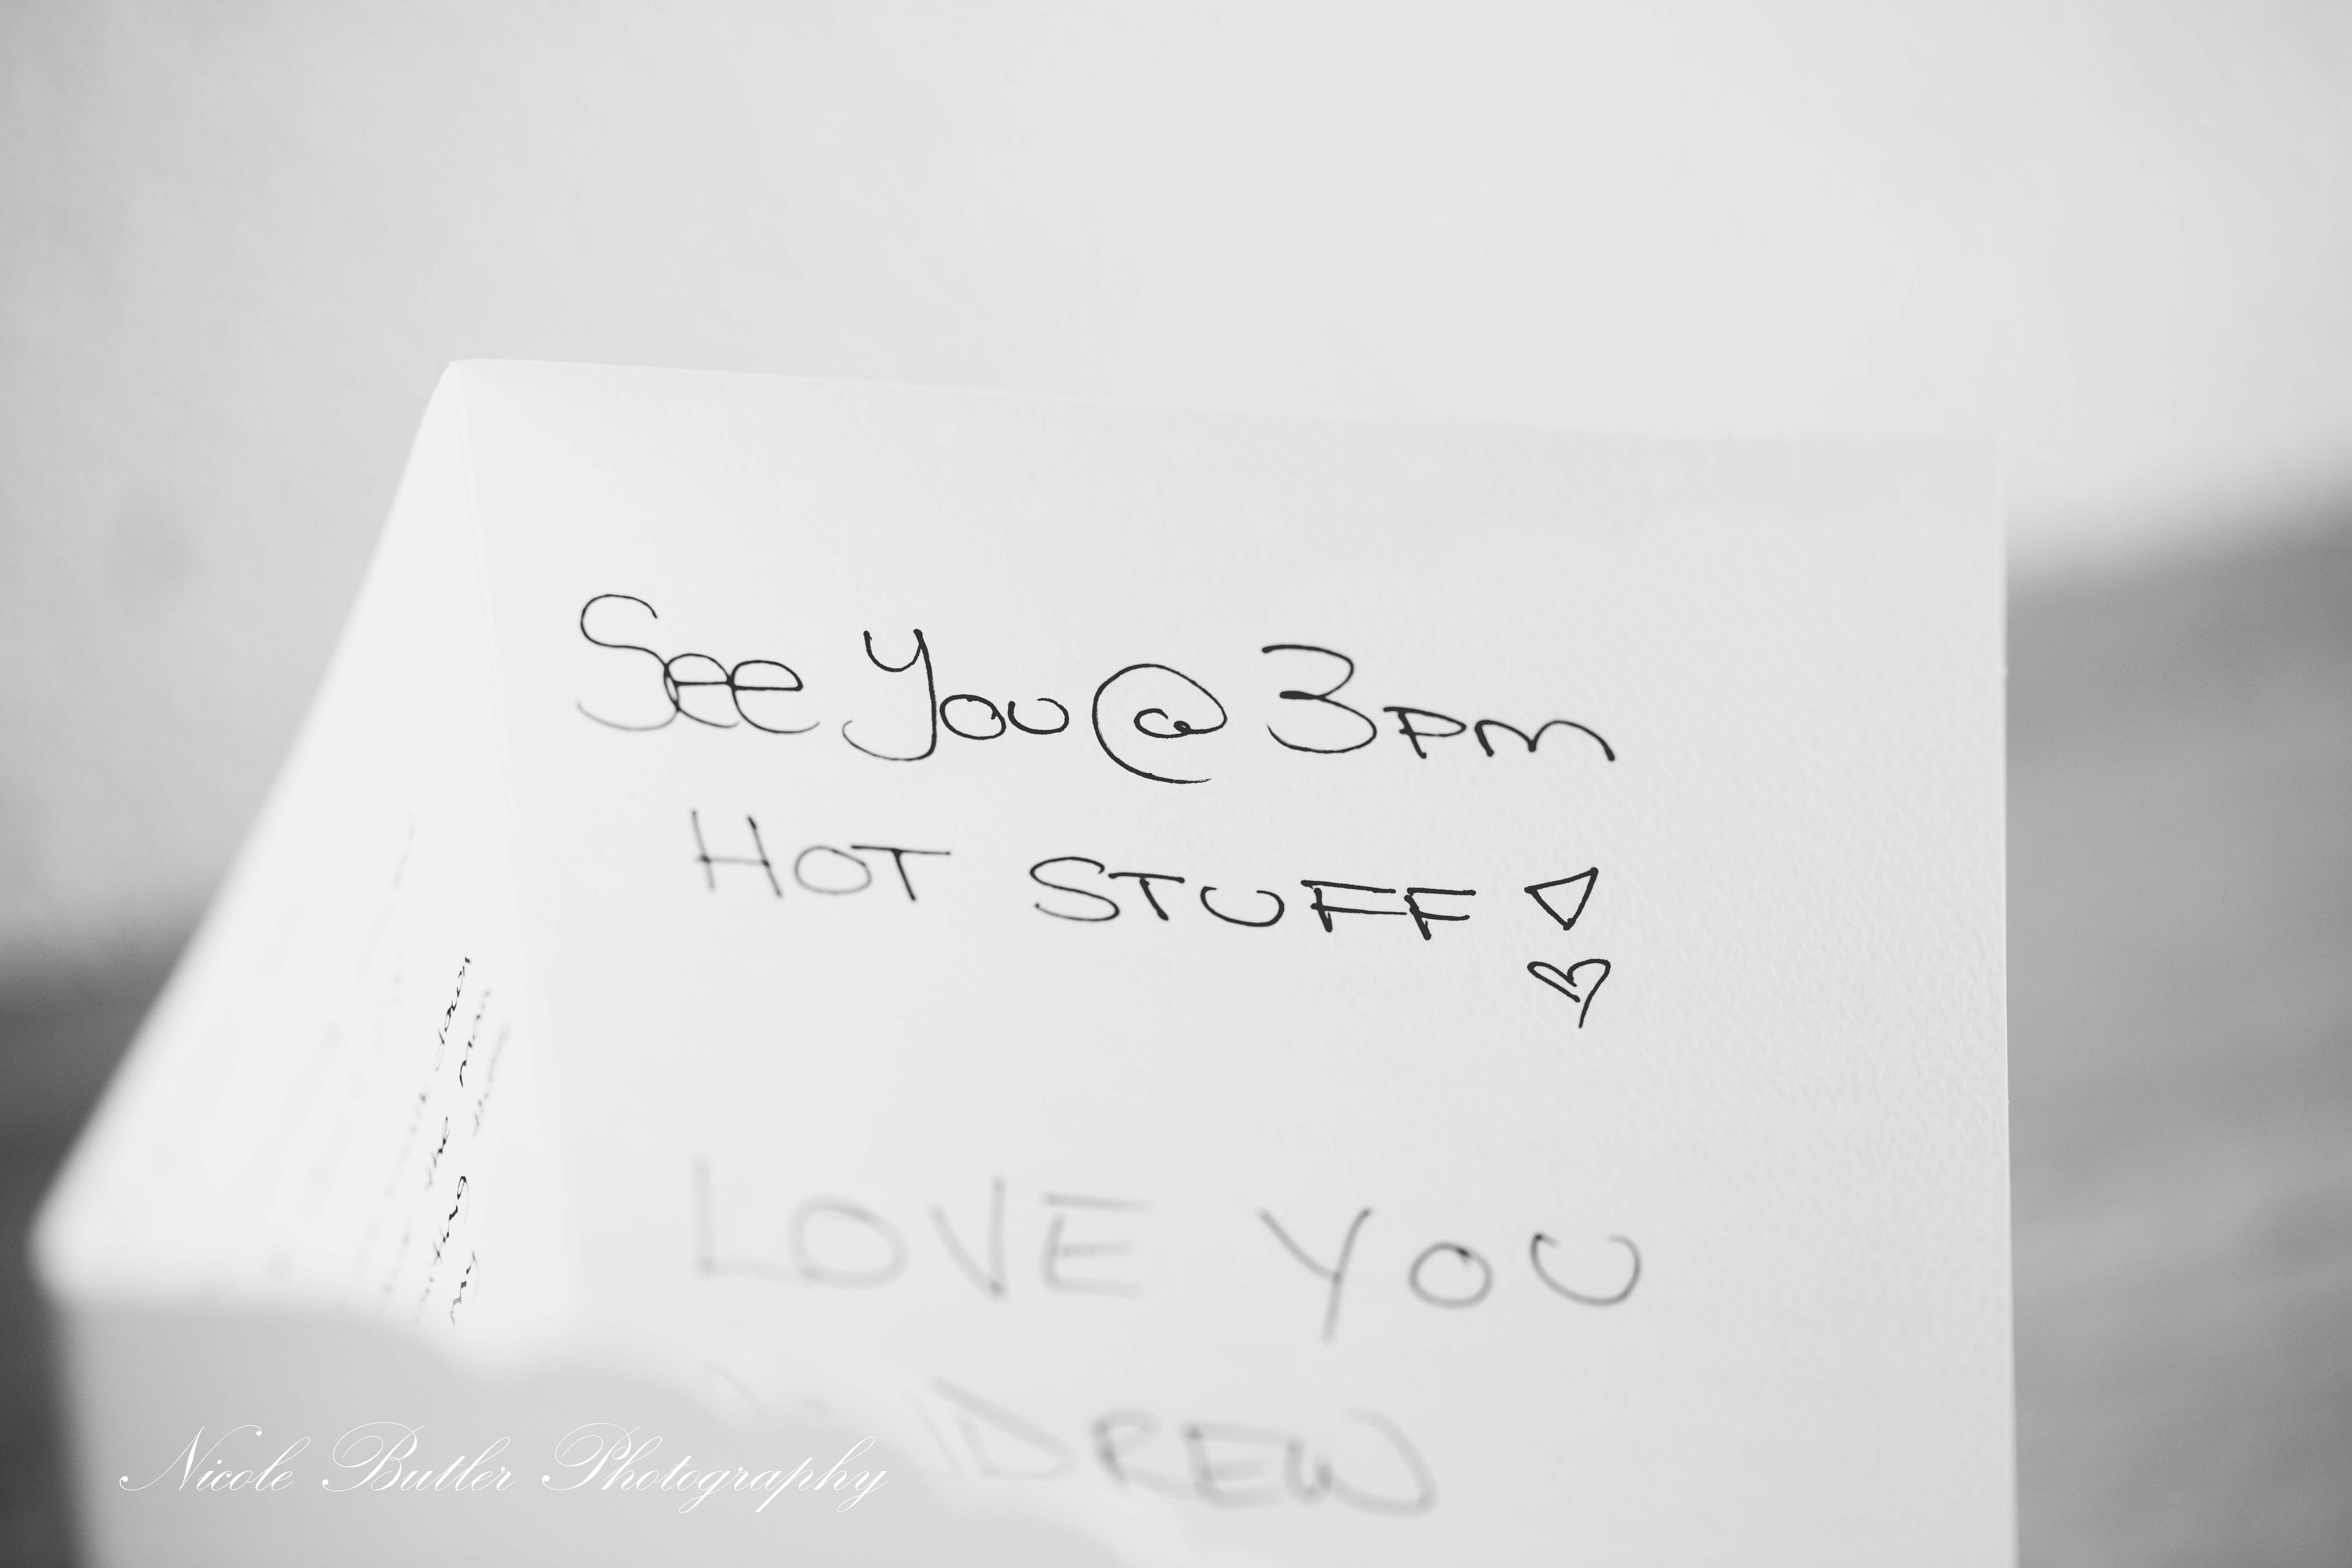 See you @ 3pm
HOT STUFF!
LOVE YOU
DREW
Nicole Butler Photography